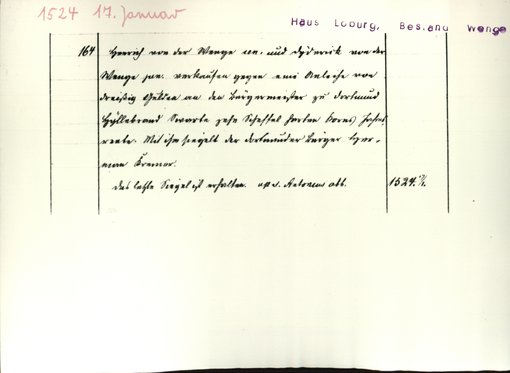 1524 17. Januar
Haus Loburg, Bestand Wenge
164 Henrich von der Wenge sen. und Dyderick von der
Wenge jun. verkaufen gegen eine Anleihe von
dreißig Gulden an den Bürgermeister zu Dortmund
Hyllebrand Swarte zehn Scheffel harten Korns Jahres
rente. Mit ihm siegelt der Dortmunder Bürger Her-
man Kremer.
Das letzte Siegel ist erhalten. Antonius abb. 1524.17/1.